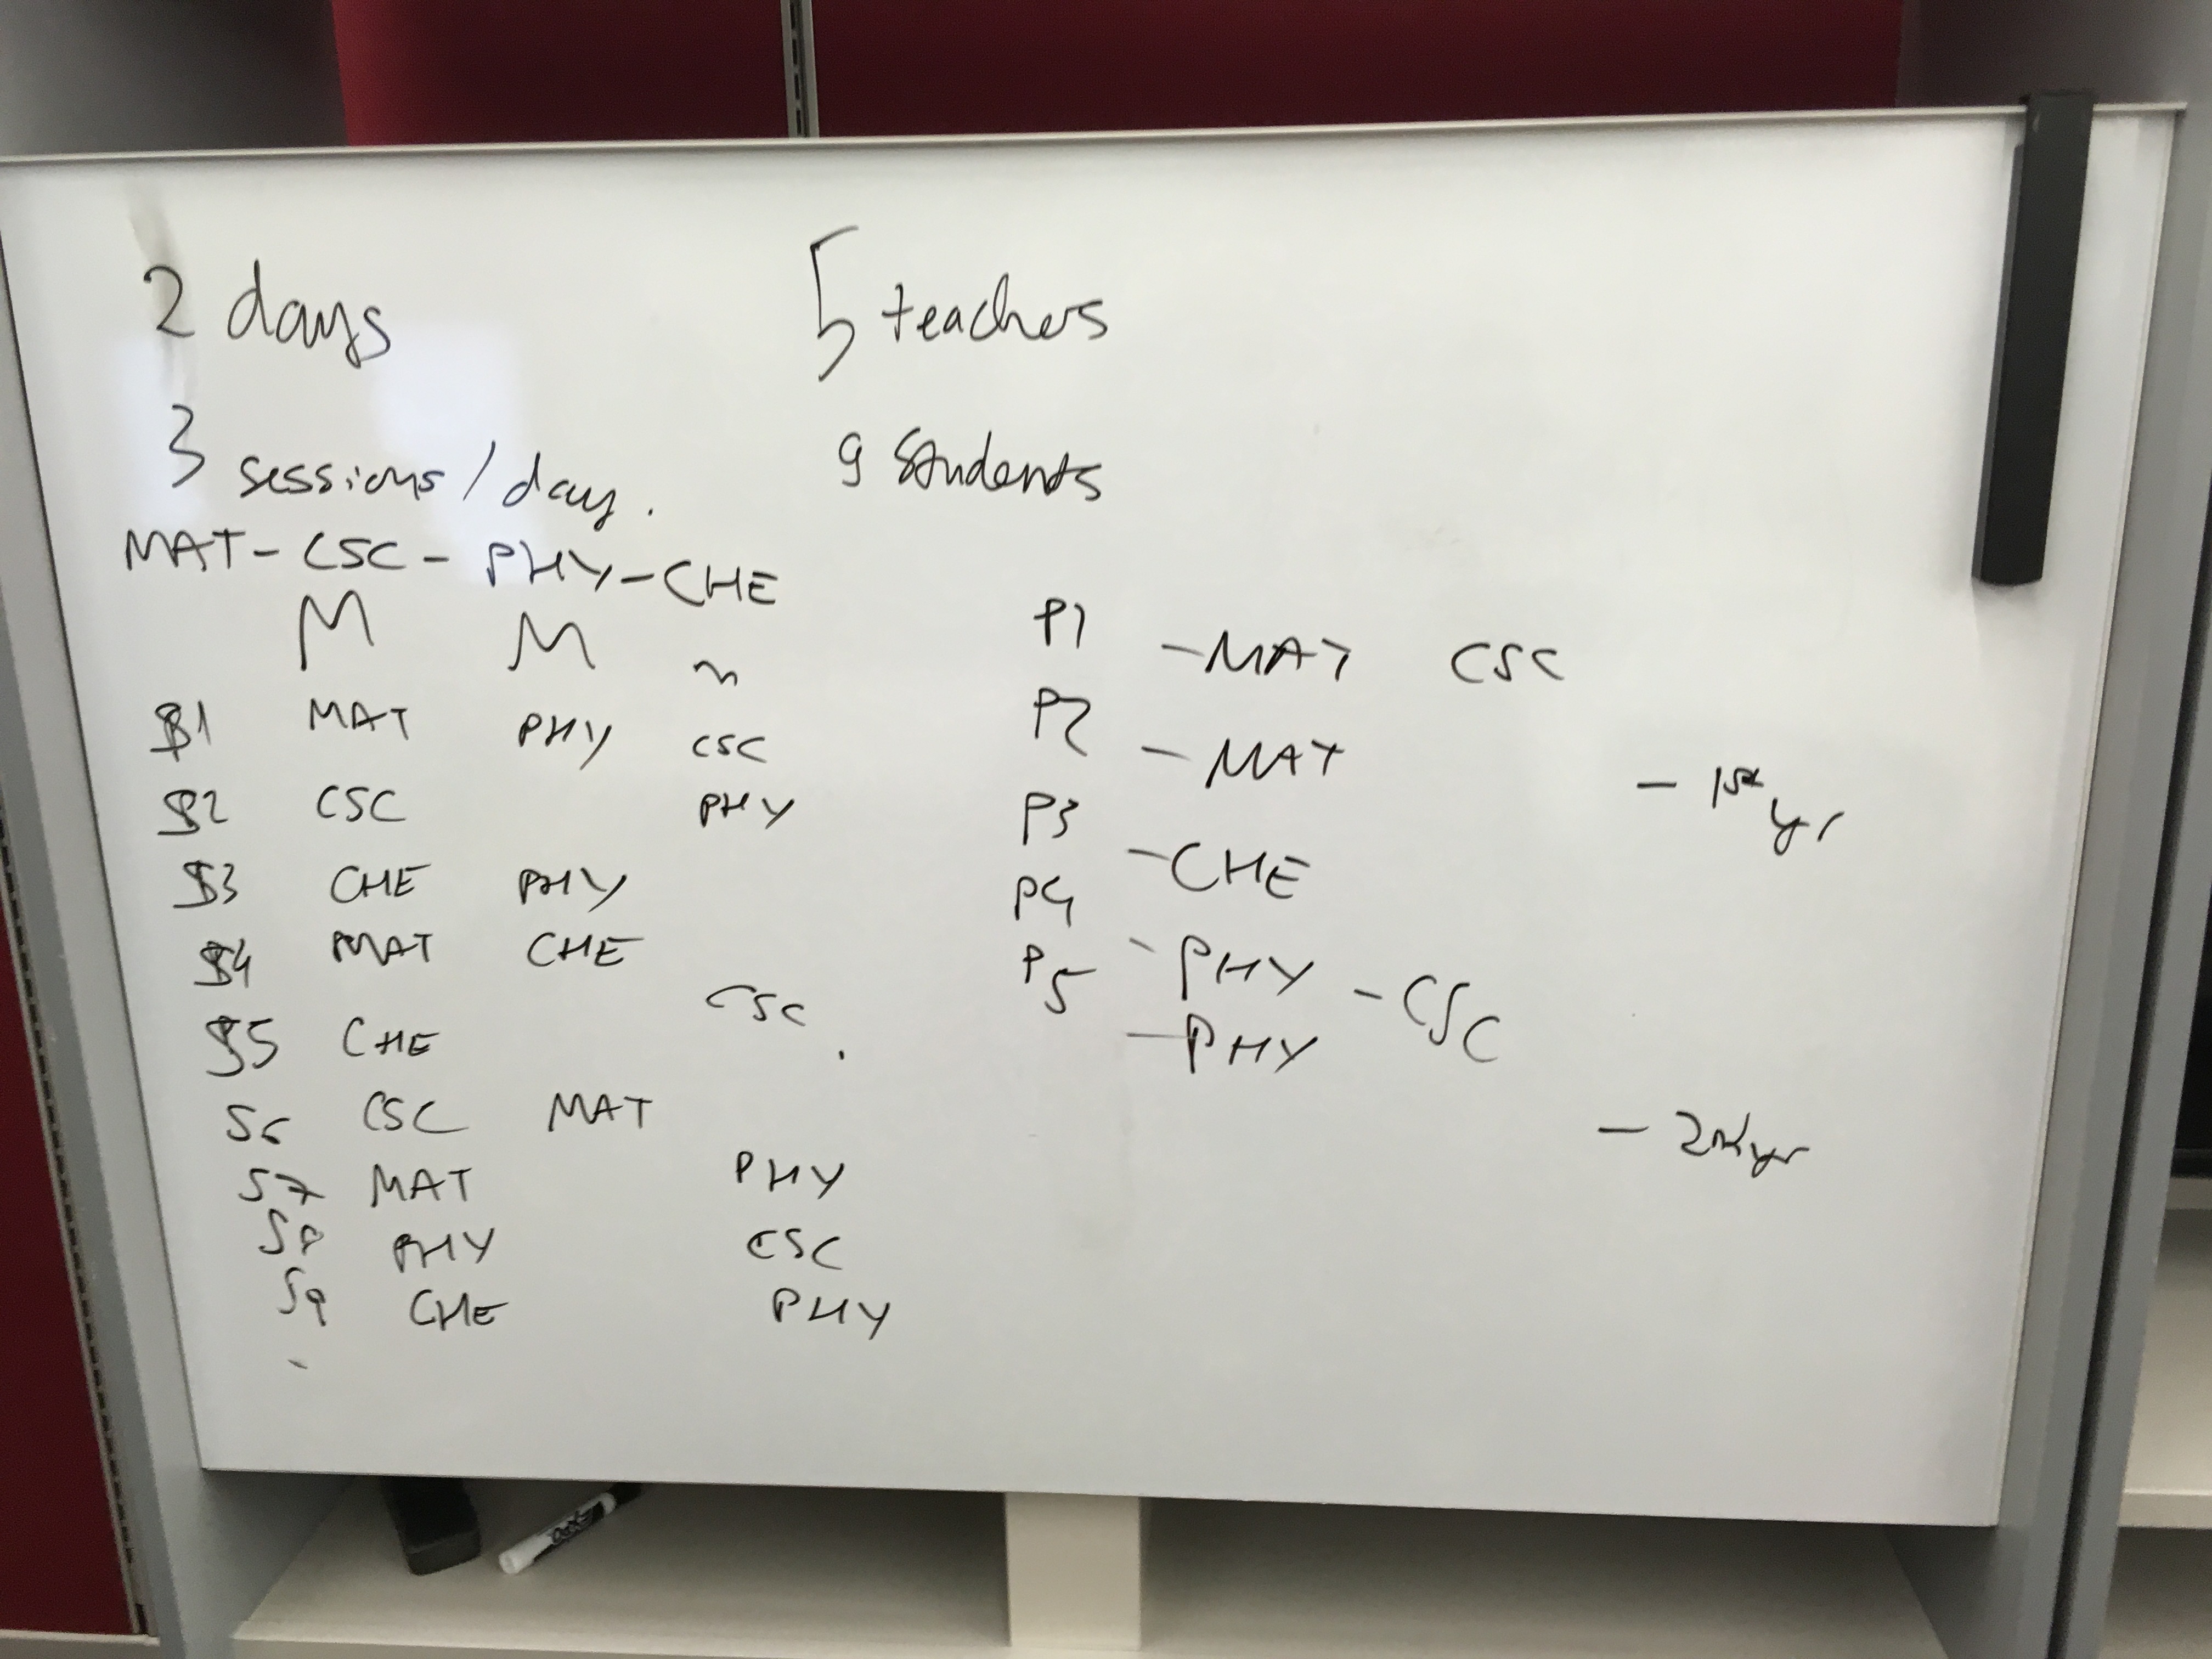 2 days
5 teachers
3 sessions/day.
9 Students
MAT - CSC - PHY - CHE
M M m
S1 MAT PHY CSC
S2 CSC PHY
S3 CHE PHY
S4 MAT CHE
S5 CHE CSC
S6 CSC MAT
S7 MAT PHY
S8 PHY CSC
S9 CHE PHY
P1 - MAT CSC
P2 - MAT
- 1st yr
P3 - CHE
P4 - PHY - CSC
P5 - PHY
- 2nd yr
EXPO